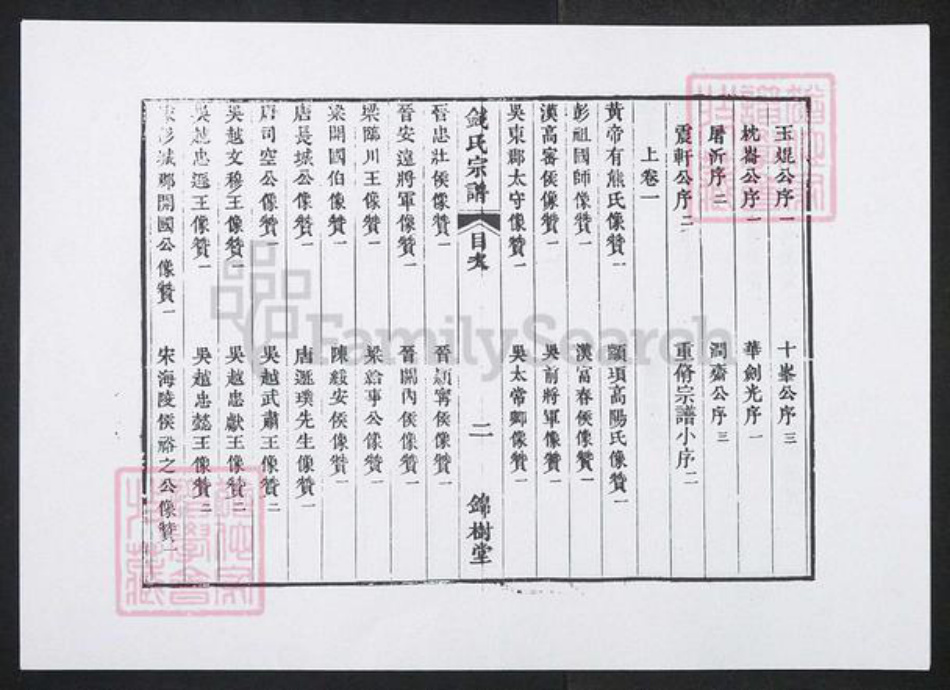 玉焜公序一　十峯公序三
枕崙公序一　華劍光序一
屠沂序二　潤齋公序三
震軒公序二　重脩宗譜小序二
上卷一
黃帝有熊氏像贊一　顓頊高陽氏像贊一
彭祖國師像贊一　漢富春侯像贊一
漢高審侯像贊一　吳前將軍像贊一
吳東郡太守像贊一　吳太常卿像贊一
錢氏宗譜　目次　二　錦樹堂
晉忠壯侯像贊一　晉潁寗侯像贊一
晉安遠將軍像贊一　晉關內侯像贊一
梁臨川王像贊一　梁給事公像贊一
梁開國伯像贊一　陳綏安侯像贊一
唐長城公像贊一　唐遯璞先生像贊一
唐司空公像贊一　吳越武肅王像贊二
吳越文穆王像贊一　吳越忠獻王像贊一
吳越忠遜王像贊一　吳越忠懿王像贊二
宋彭城郡開國公像贊一　宋海陵侯裕之公像贊一
FamilySearch